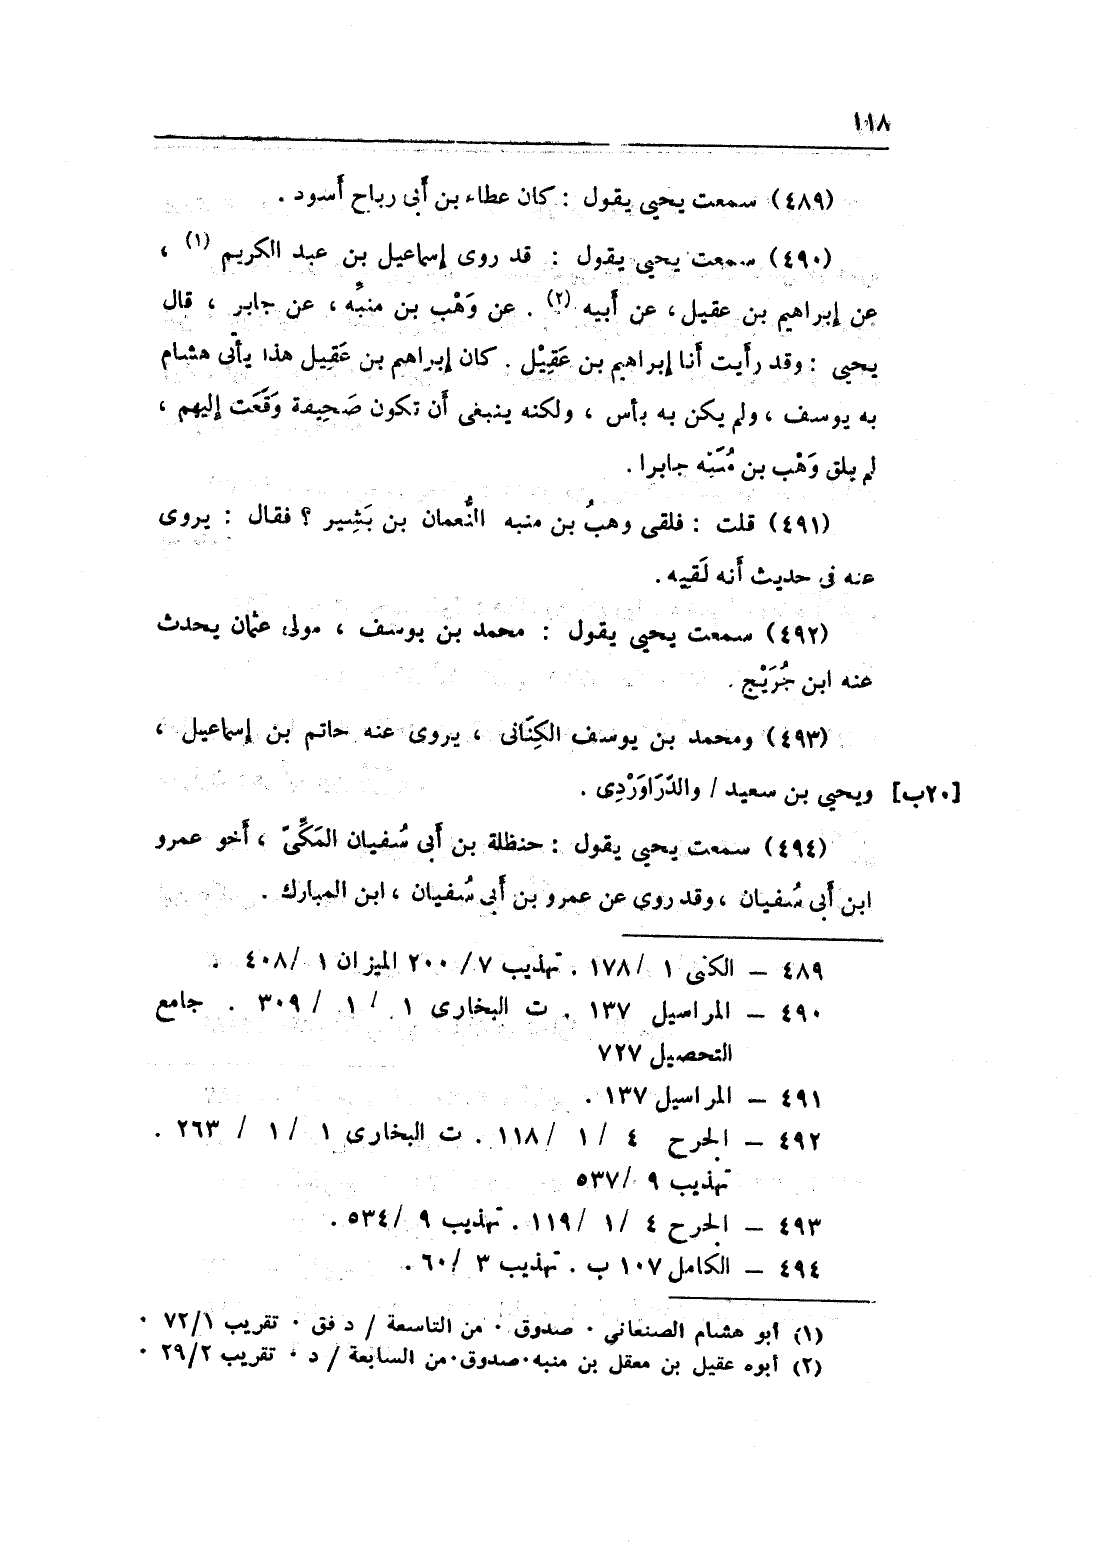 ١١٨
(٤٨٩) سمعت يحيى يقول : كان عطاء بن أَبى رباح أَسود .
(٤٩٠) سمعت يحيى يقول : قد روى إسماعيل بن عبد الكريم (١) ،
عن إبراهيم بن عقيل ، عن أَبيه (٢) . عن وَهْب بن منبِّه ، عن جابر ، قال
يحيى : وقد رأَيت أَنا إبراهيم بن عَقِيْل . كان إبراهيم بن عَقِيل هذا يأتى هشام
به يوسف ، ولم يكن به بأس ، ولكنه ينبغى أَن تكون صَحيفة وَقَعَت إليهم ،
لم يلق وَهْب بن مُنَبِّه جابرا .
(٤٩١) قلت : فلقى وهبُ بن منبه النُّعمان بن بَشِير ؟ فقال : يروى
عنه فى حديث أَنه لَقيه .
(٤٩٢) سمعت يحيى يقول : محمد بن يوسف ، مولى عثمان يحدث
عنه ابن جُرَيْج .
(٤٩٣) ومحمد بن يوسف الكِنَانى ، يروى عنه حاتم بن إسماعيل ،
ويحيى بن سعيد / والدَّرَاوَرْدِى . [٢٠ب]
(٤٩٤) سمعت يحيى يقول : حنظلة بن أَبى سُفيان المَكِّىّ ، أَخو عمرو
ابن أَبى سُفيان ، وقد روى عن عمرو بن أَبى سُفيان ، ابن المبارك .
٤٨٩ – الكنى ١ /١٧٨ . تهذيب ٧/ ٢٠٠ الميزان ١ /٤٠٨ .
٤٩٠ – المراسيل ١٣٧ . ت البخارى ١ / ١ / ٣٠٩ . جامع
التحصيل ٧٢٧
٤٩١ – المراسيل ١٣٧ .
٤٩٢ – الجرح ٤ / ١ /١١٨ . ت البخارى ١ / ١ / ٢٦٣ .
تهذيب ٩ /٥٣٧
٤٩٣ – الجرح ٤ / ١ /١١٩ . تهذيب ٩ /٥٣٤ .
٤٩٤ – الكامل ١٠٧ ب . تهذيب ٣ /٦٠ .
(١) أبو هشام الصنعاني . صدوق . من التاسعة / د فق . تقريب ٧٢/١ .
(٢) أبوه عقيل بن معقل بن منبه . صدوق . من السابعة / د . تقريب ٢٩/٢ .